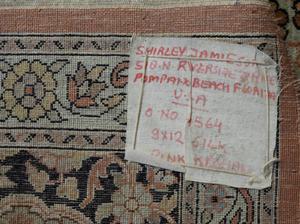 SHIRLEY JAMIESON
510 N. RIVERSIDE
POMPANO BEACH FLORIDA
U.S.A
O NO 1564
9X12 SILK
PINK